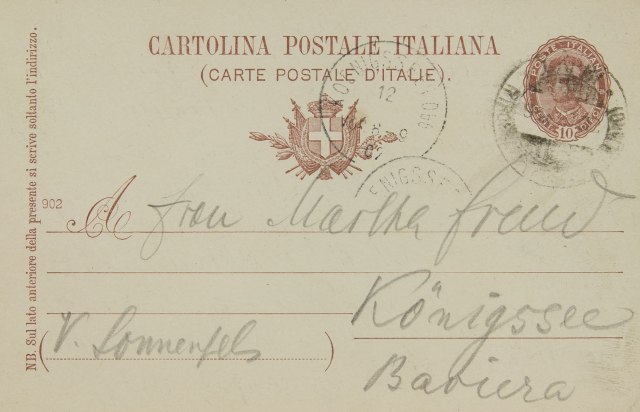 CARTOLINA POSTALE ITALIANA
(CARTE POSTALE D'ITALIE).
POSTE ITALIANE
CENT. 10 DIECI
12
NB. Sul lato anteriore della presente si scrive soltanto l'indirizzo.
902
A Frau Martha Freud
Königssee
(V. Sonnenfels)
Baviera